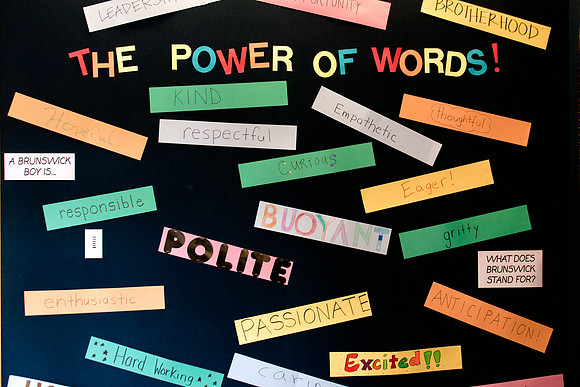 LEADERSHIP
OPPORTUNITY
BROTHERHOOD
THE POWER OF WORDS!
KIND
Hopeful
respectful
Empathetic
thoughtful
A BRUNSWICK
BOY IS...
Curious
Eager!
responsible
BUOYANT
gritty
POLITE
WHAT DOES
BRUNSWICK
STAND FOR?
enthusiastic
PASSIONATE
ANTICIPATION!
Hard Working
Excited!!